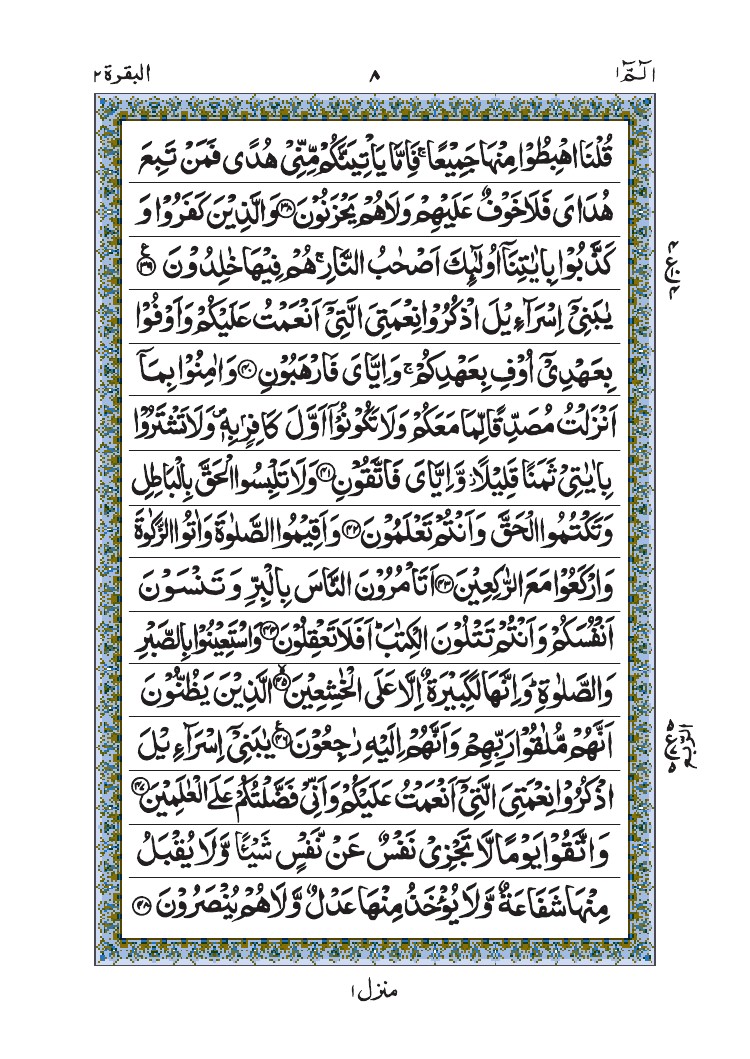 الٓمّٓ ١ ٨ البقرة ٢
قُلْنَا اهْبِطُوْا مِنْهَا جَمِيْعًا ۚ فَاِمَّا يَاْتِيَنَّكُمْ مِّنِّىْ هُدًى فَمَنْ تَبِعَ
هُدَاىَ فَلَا خَوْفٌ عَلَيْهِمْ وَلَا هُمْ يَحْزَنُوْنَ ﴿٣٨﴾ وَالَّذِيْنَ كَفَرُوْا وَ
كَذَّبُوْا بِاٰيٰتِنَآ اُولٰٓئِكَ اَصْحٰبُ النَّارِ ۚ هُمْ فِيْهَا خٰلِدُوْنَ ﴿٣٩﴾ ع
يٰبَنِىْٓ اِسْرَآءِيْلَ اذْكُرُوْا نِعْمَتِىَ الَّتِىْٓ اَنْعَمْتُ عَلَيْكُمْ وَاَوْفُوْا
بِعَهْدِىْٓ اُوْفِ بِعَهْدِكُمْ ۚ وَاِيَّاىَ فَارْهَبُوْنِ ﴿٤٠﴾ وَاٰمِنُوْا بِمَآ
اَنْزَلْتُ مُصَدِّقًا لِّمَا مَعَكُمْ وَلَا تَكُوْنُوْٓا اَوَّلَ كَافِرٍۭ بِهٖ ۪ وَلَا تَشْتَرُوْا
بِاٰيٰتِىْ ثَمَنًا قَلِيْلًا ؗ وَّاِيَّاىَ فَاتَّقُوْنِ ﴿٤١﴾ وَلَا تَلْبِسُوا الْحَقَّ بِالْبَاطِلِ
وَتَكْتُمُوا الْحَقَّ وَاَنْتُمْ تَعْلَمُوْنَ ﴿٤٢﴾ وَاَقِيْمُوا الصَّلٰوةَ وَاٰتُوا الزَّكٰوةَ
وَارْكَعُوْا مَعَ الرّٰكِعِيْنَ ﴿٤٣﴾ اَتَاْمُرُوْنَ النَّاسَ بِالْبِرِّ وَتَنْسَوْنَ
اَنْفُسَكُمْ وَاَنْتُمْ تَتْلُوْنَ الْكِتٰبَ ؕ اَفَلَا تَعْقِلُوْنَ ﴿٤٤﴾ وَاسْتَعِيْنُوْا بِالصَّبْرِ
وَالصَّلٰوةِ ؕ وَاِنَّهَا لَكَبِيْرَةٌ اِلَّا عَلَى الْخٰشِعِيْنَ ﴿٤٥﴾ الَّذِيْنَ يَظُنُّوْنَ
اَنَّهُمْ مُّلٰقُوْا رَبِّهِمْ وَاَنَّهُمْ اِلَيْهِ رٰجِعُوْنَ ﴿٤٦﴾ ع يٰبَنِىْٓ اِسْرَآءِيْلَ
اذْكُرُوْا نِعْمَتِىَ الَّتِىْٓ اَنْعَمْتُ عَلَيْكُمْ وَاَنِّىْ فَضَّلْتُكُمْ عَلَى الْعٰلَمِيْنَ ﴿٤٧﴾
وَاتَّقُوْا يَوْمًا لَّا تَجْزِىْ نَفْسٌ عَنْ نَّفْسٍ شَيْـًٔا وَّلَا يُقْبَلُ
مِنْهَا شَفَاعَةٌ وَّلَا يُؤْخَذُ مِنْهَا عَدْلٌ وَّلَا هُمْ يُنْصَرُوْنَ ﴿٤٨﴾
الرّبع
منزل ١